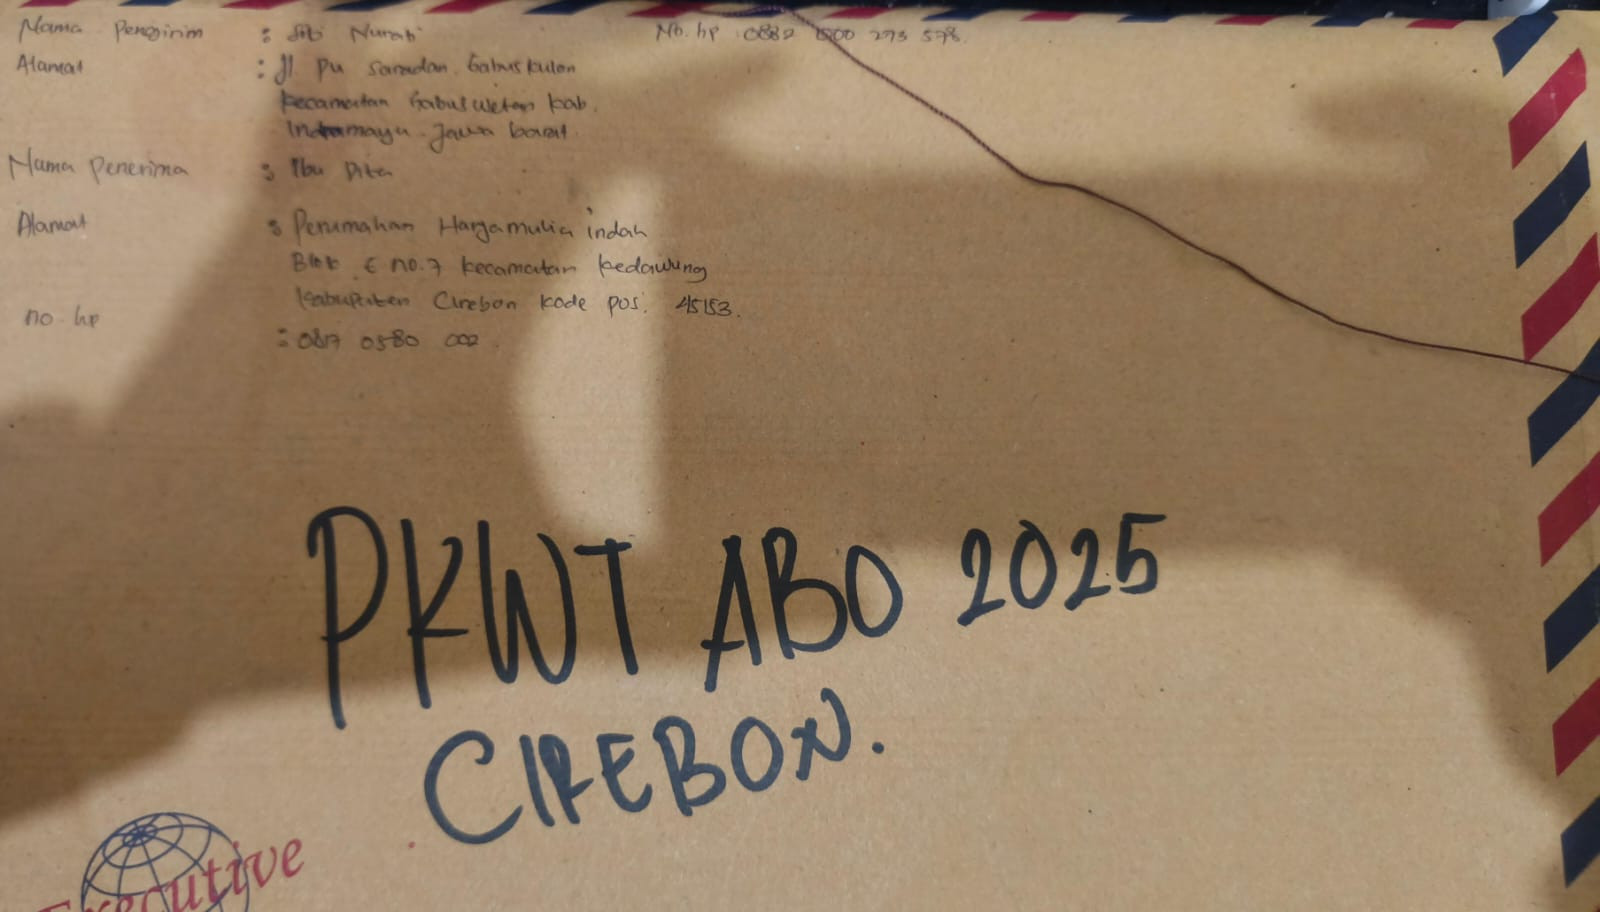 Nama Pengirim : Siti Nurab' No. hp 0882 000 273 578.
Alamat : Jl pu saradan. Gabus kulon
kecamatan Gabus wetan kab.
Indramayu - Jawa barat.
Nama Penerima : Ibu Dita
Alamat : Perumahan Hargamulia indah
Blok E no.7 kecamatan kedawung
kabupaten Cirebon kode pos. 45153.
no. hp : 0817 0380 002
PKWT ABO 2025
CIREBON.
Executive